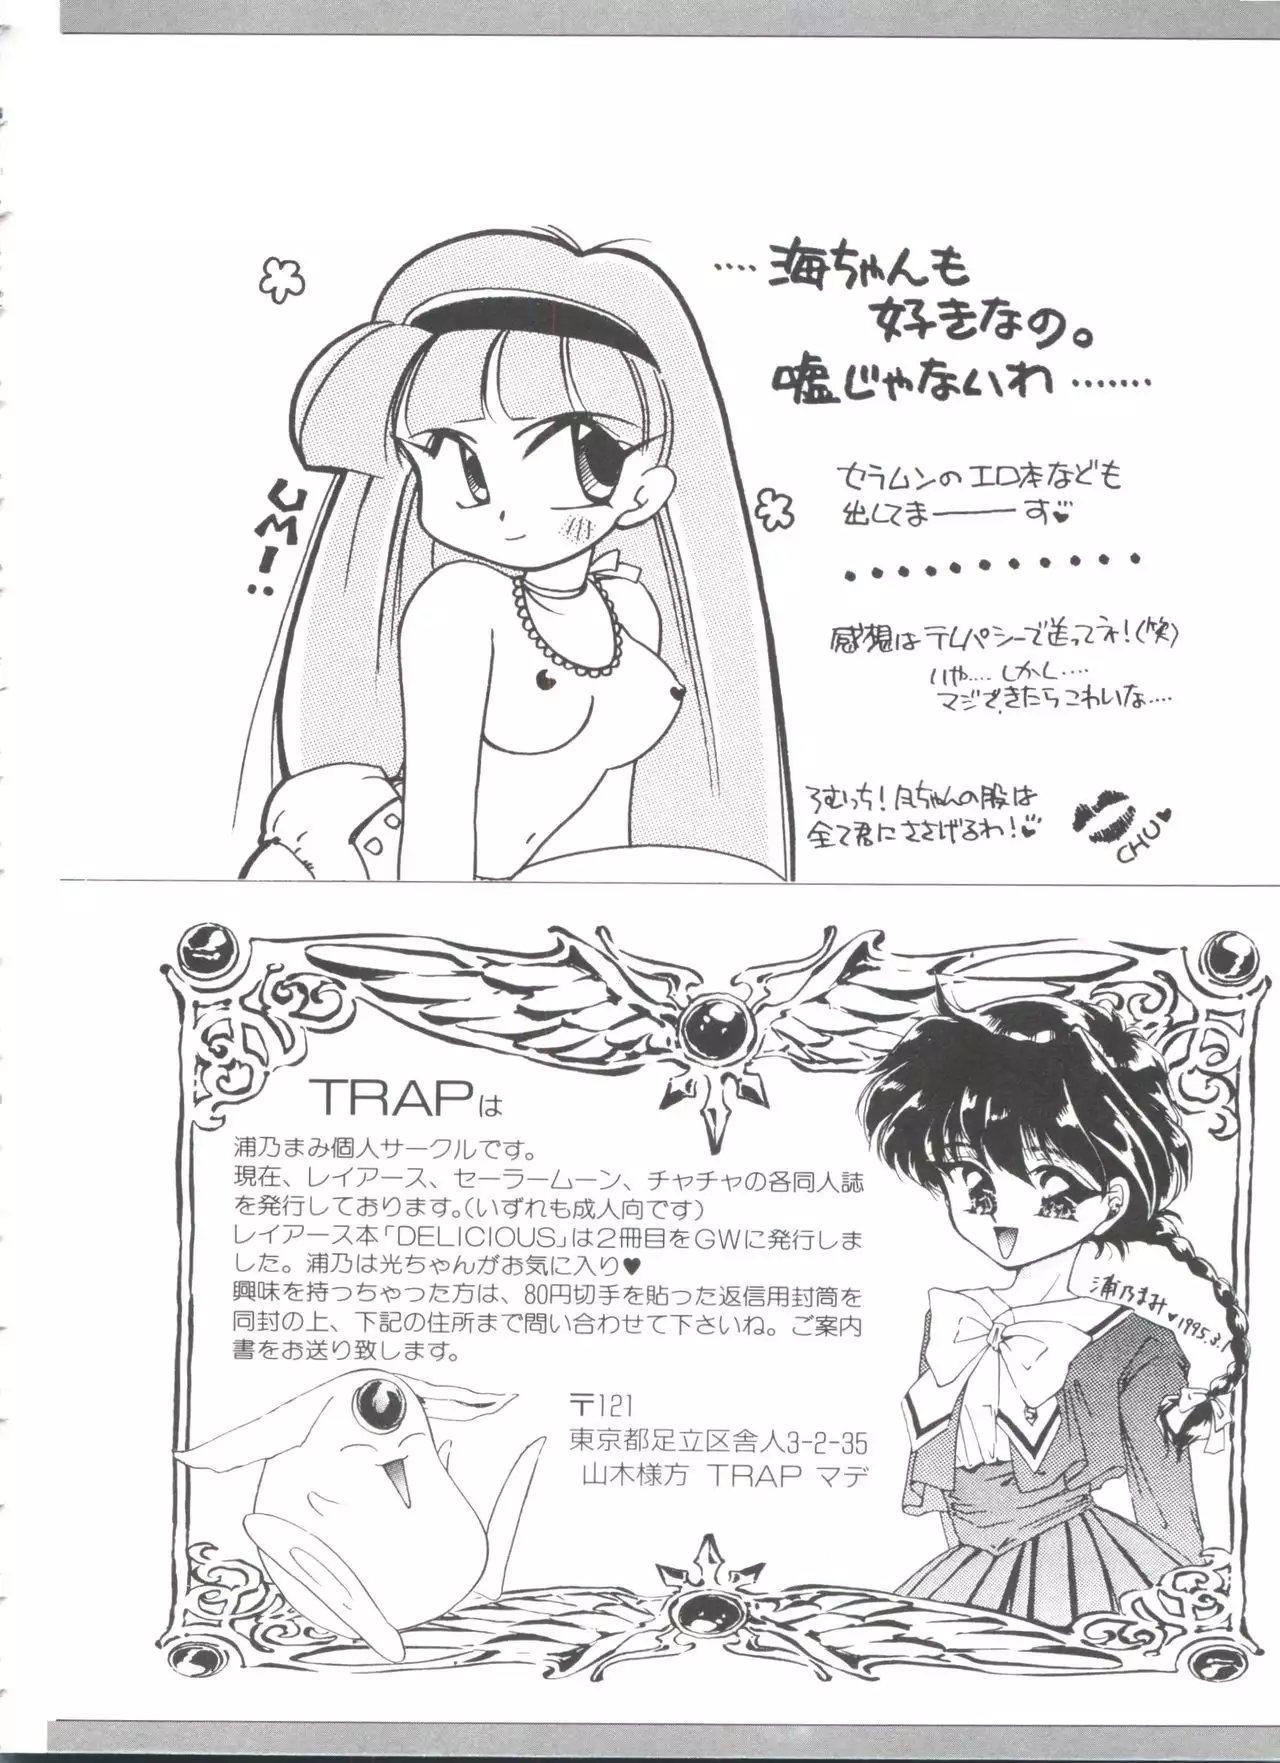 ‥‥海ちゃんも
好きなの。
嘘じゃないわ‥‥‥
UMI‥
セラムンのエロ本なども
出してまーーーす♥
感想はテレパシーで送ってネ!(笑)
いや‥‥しかし‥‥
マジできたらこわいな‥‥
ろむっち!月ちゃんの股は
全て君にささげるわ!♥
CHU♥
TRAPは
浦乃まみ個人サークルです。
現在、レイアース、セーラームーン、チャチャの各同人誌
を発行しております。(いずれも成人向です)
レイアース本「DELICIOUS」は2冊目をGWに発行しま
した。浦乃は光ちゃんがお気に入り♥
興味を持っちゃった方は、80円切手を貼った返信用封筒を
同封の上、下記の住所まで問い合わせて下さいね。ご案内
書をお送り致します。
浦乃まみ♥
1995.3.1
〒121
東京都足立区舎人3-2-35
山木様方 TRAP マデ